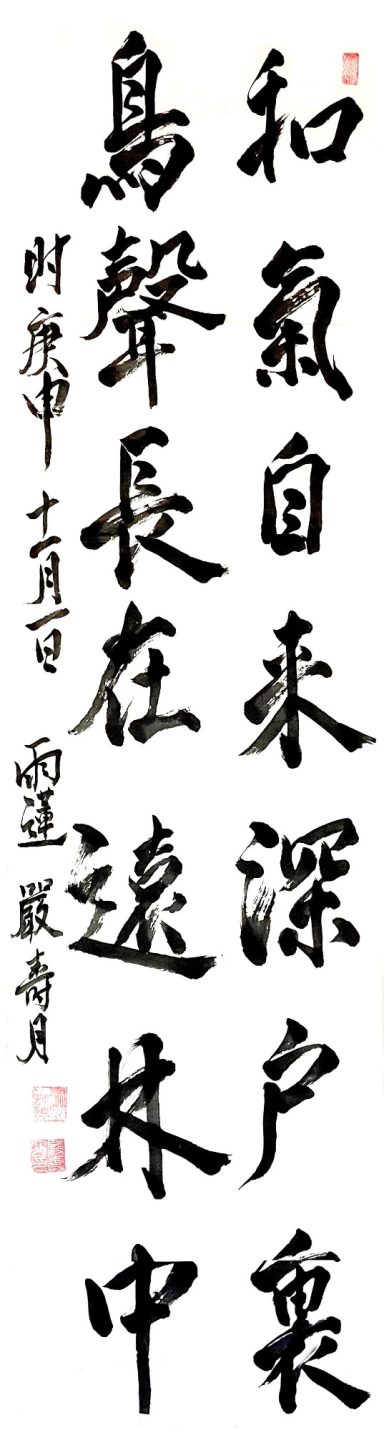 和氣自来深户裏
鳥聲長在遠林中
时庚申十一月一日 雨蓮 嚴壽月